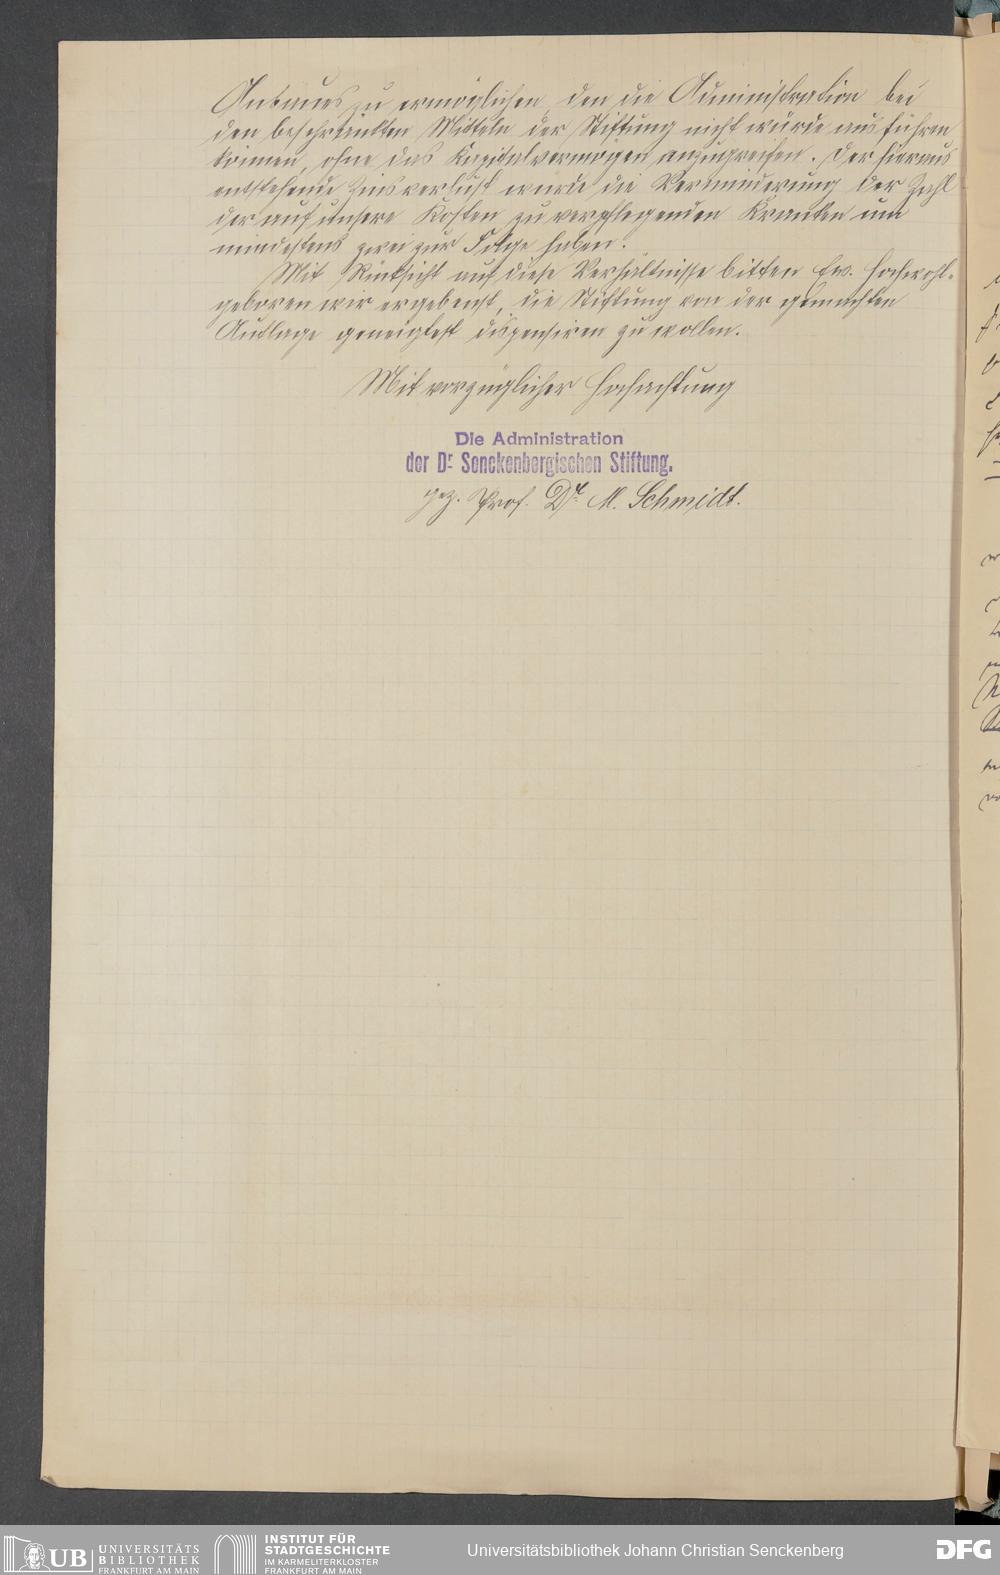 Anbaues zu ermöglichen, den die Administration bei
den beschränkten Mitteln der Stiftung nicht würde ausführen
können, ohne das Kapitalvermögen anzugreifen. Der hieraus
entstehende Zinsverlust würde die Verminderung der Zahl
der auf unsere Kosten zu verpflegenden Kranken um
mindestens zwei zur Folge haben.
Mit Rücksicht auf diese Verhältnisse bitten Ew. Hochwohl-
geboren wir ergebenst, die Stiftung von der gemachten
Auflage geneigtest dispensiren zu wollen.
Mit vorzüglicher Hochachtung
Die Administration
der Dr. Senckenbergischen Stiftung.
gez. Prof. Dr. M. Schmidt.
UB UNIVERSITÄTS
BIBLIOTHEK
FRANKFURT AM MAIN
INSTITUT FÜR
STADTGESCHICHTE
IM KARMELITERKLOSTER
FRANKFURT AM MAIN
Universitätsbibliothek Johann Christian Senckenberg
DFG